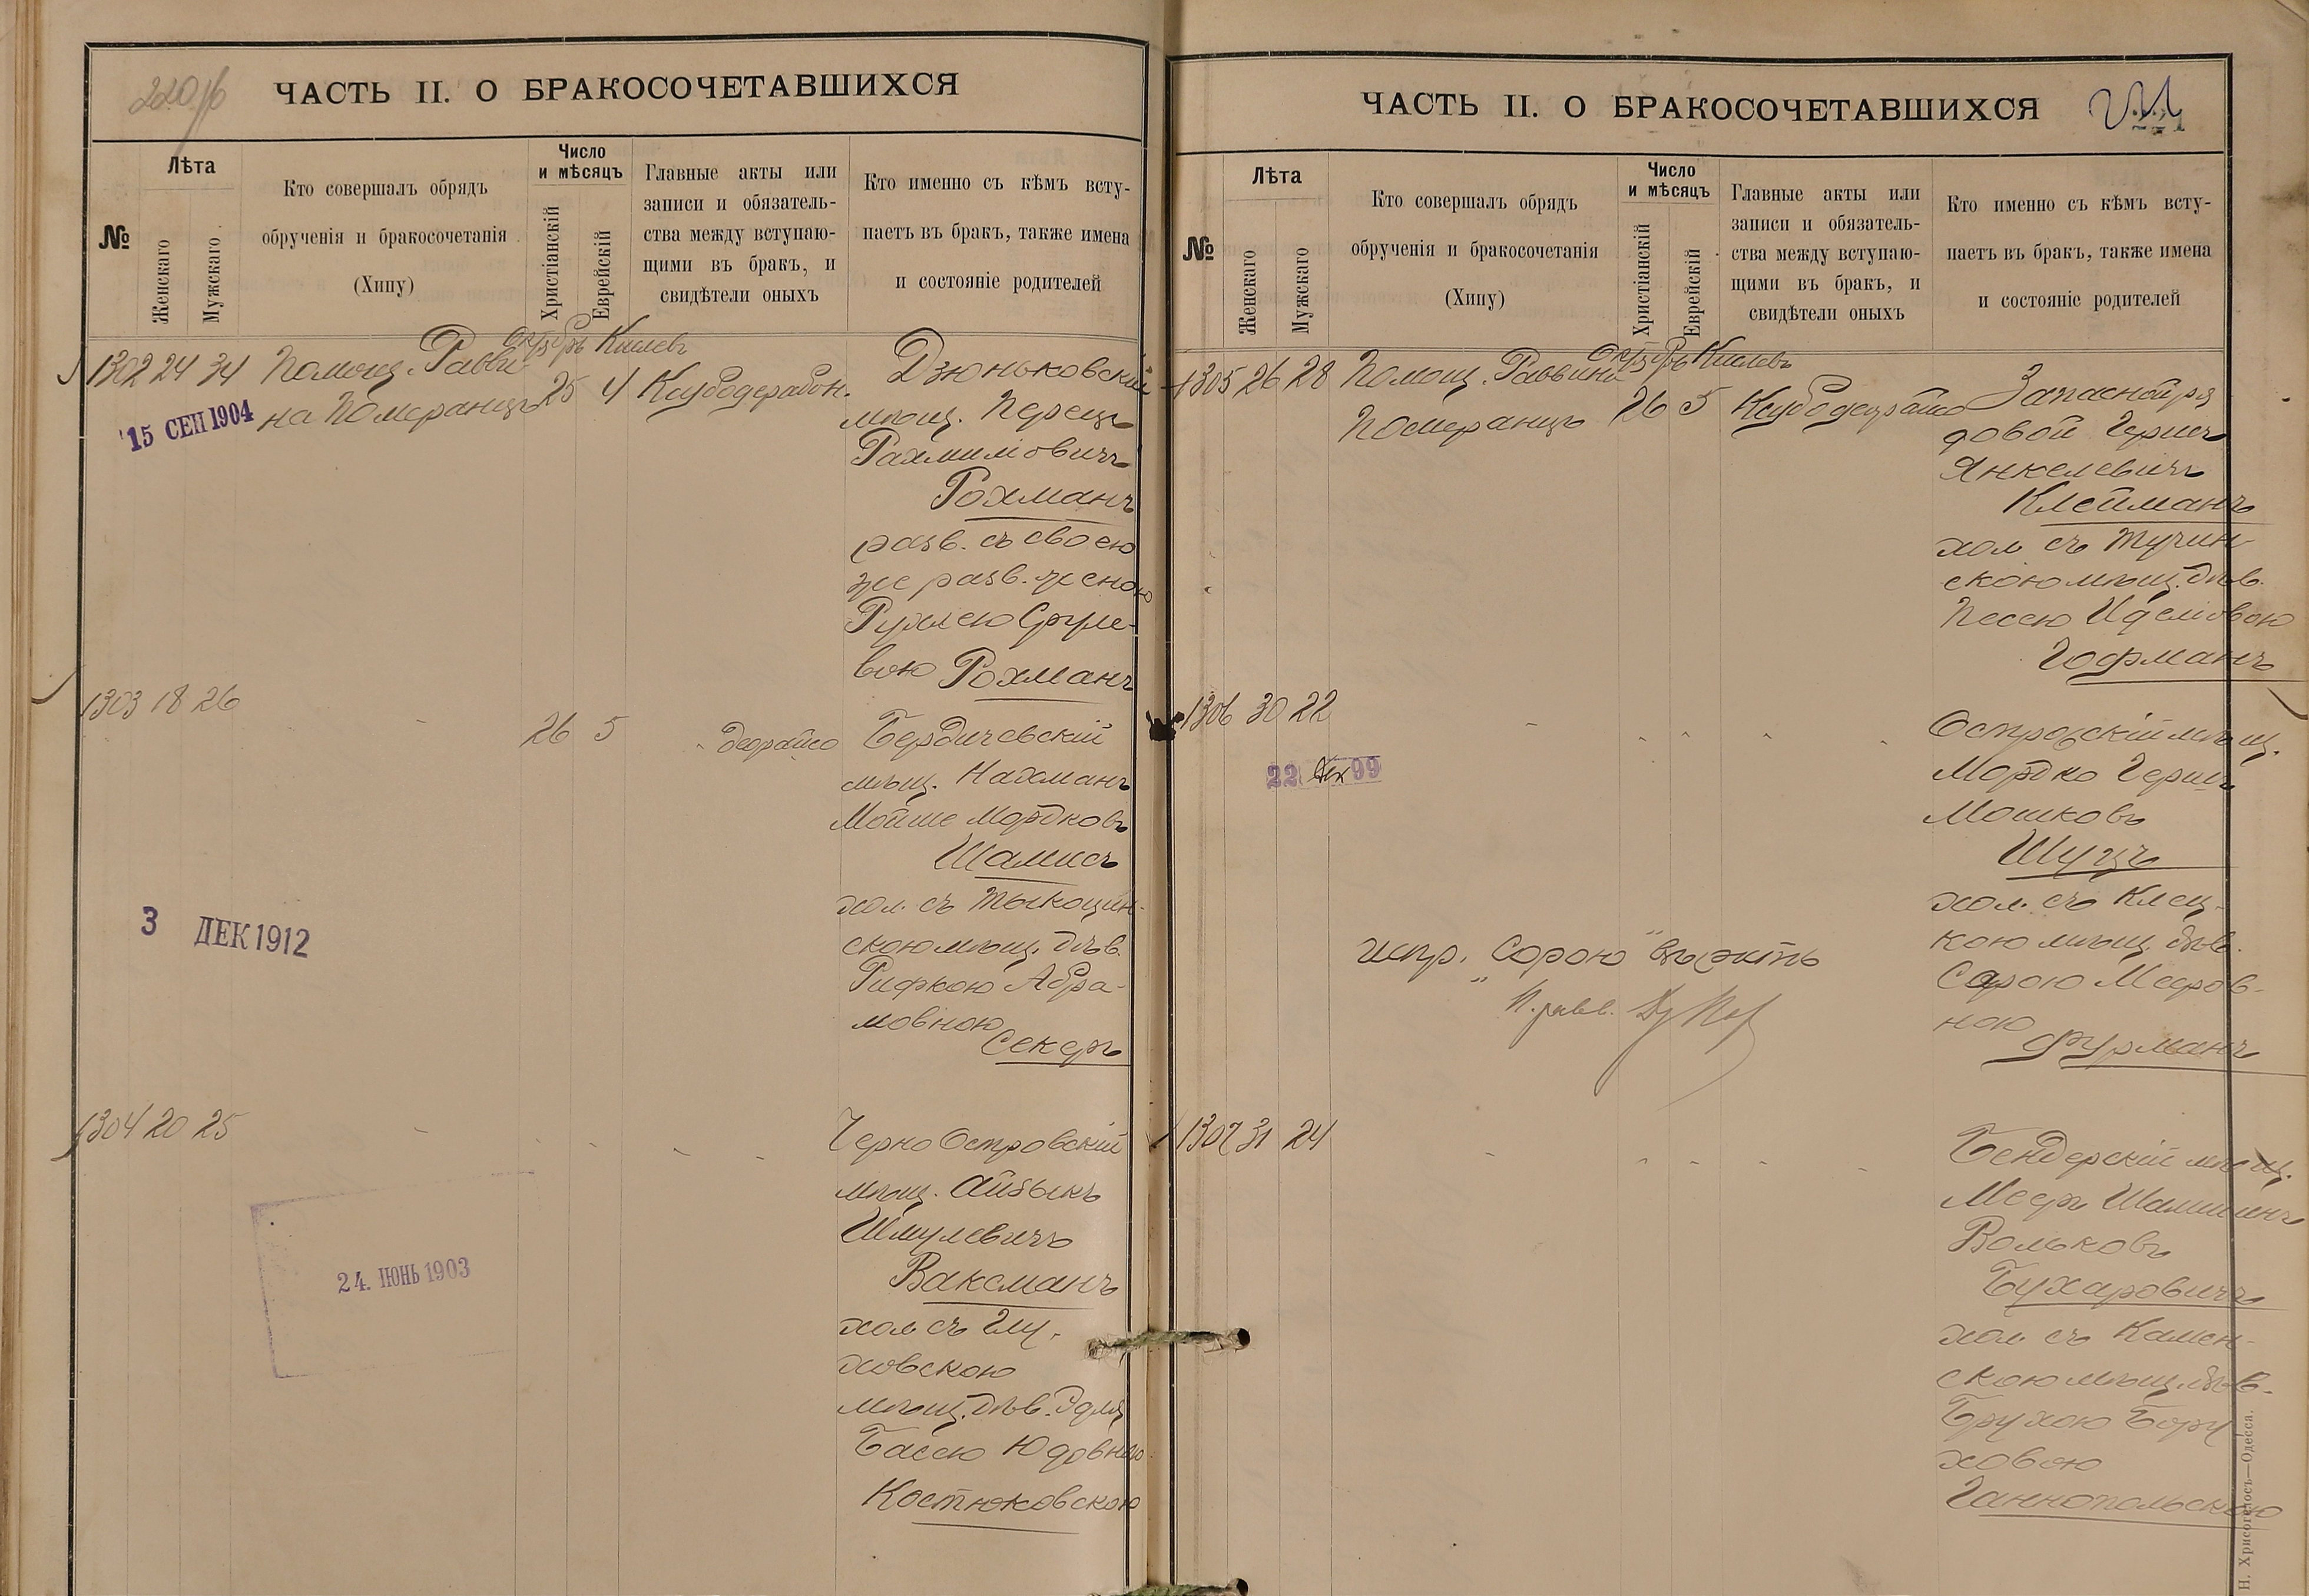 220 об
ЧАСТЬ II. О БРАКОСОЧЕТАВШИХСЯ
№
Лѣта
Женскаго
Мужскаго
Кто совершалъ обрядъ
обрученія и бракосочетанія
(Хипу)
Число
и мѣсяцъ
Христіанскій
Еврейскій
Главные акты или
записи и обязатель-
ства между вступаю-
щими въ бракъ, и
свидѣтели оныхъ
Кто именно съ кѣмъ всту-
паетъ въ бракъ, также имена
и состояніе родителей
Октябрь Кислевъ
1302 24 34 Помощ. Равви
на Померанцъ
25 4
15 СЕП 1904
Дзюньковскій
мѣщ. Перецъ
Рахмиловичъ
Рохманъ
разв. съ своею
же разв. женою
Рухлею Сруле-
вою Рохманъ
1303 18 26
26 5
Бердичевскій
мѣщ. Нахманъ
Мойше Мордковъ
Шамисъ
хол. съ Тыкоцин-
скою мѣщ. дѣв.
Рифкою Абра-
мовною
Секеръ
3 ДЕК 1912
1304 20 25
Черно Островскій
мѣщ. Айзыкъ
Шмулевичъ
Ваксманъ
хол съ Глу-
ховскою
мѣщ. дѣв. Эдля
Бассею Юдовною
Костюковскою
24. ІЮНЬ 1903
ЧАСТЬ II. О БРАКОСОЧЕТАВШИХСЯ
221
№
Лѣта
Женскаго
Мужскаго
Кто совершалъ обрядъ
обрученія и бракосочетанія
(Хипу)
Число
и мѣсяцъ
Христіанскій
Еврейскій
Главные акты или
записи и обязатель-
ства между вступаю-
щими въ бракъ, и
свидѣтели оныхъ
Кто именно съ кѣмъ всту-
паетъ въ бракъ, также имена
и состояніе родителей
Октябрь Кислевъ
1305 26 28 Помощ. Раввина
Померанцъ
26 5
Запасной ря
довой Гершъ
Янкелевичъ
Клейманъ
хол съ Тучин-
скою мѣщ. дѣв.
Песею Иделовою
Гофманъ
1306 30 22
22 Дек 99
Островскій мѣщ.
Мордко Гершъ
Мошковъ
Шуцъ
хол. съ Клец-
кою мѣщ. дѣв.
Сарою Мееров-
ною
Фурманъ
испр. "Сорою" вѣрить
П. равв.
1307 31 24
Бендерскій мѣщ.
Меер Шамшинъ
Вольковъ
Бухаровичъ
хол съ Камен-
скою мѣщ. дѣв.
Брухою Бору
ховою
Ганнопольскою
Н. Хрисогелосъ—Одесса.